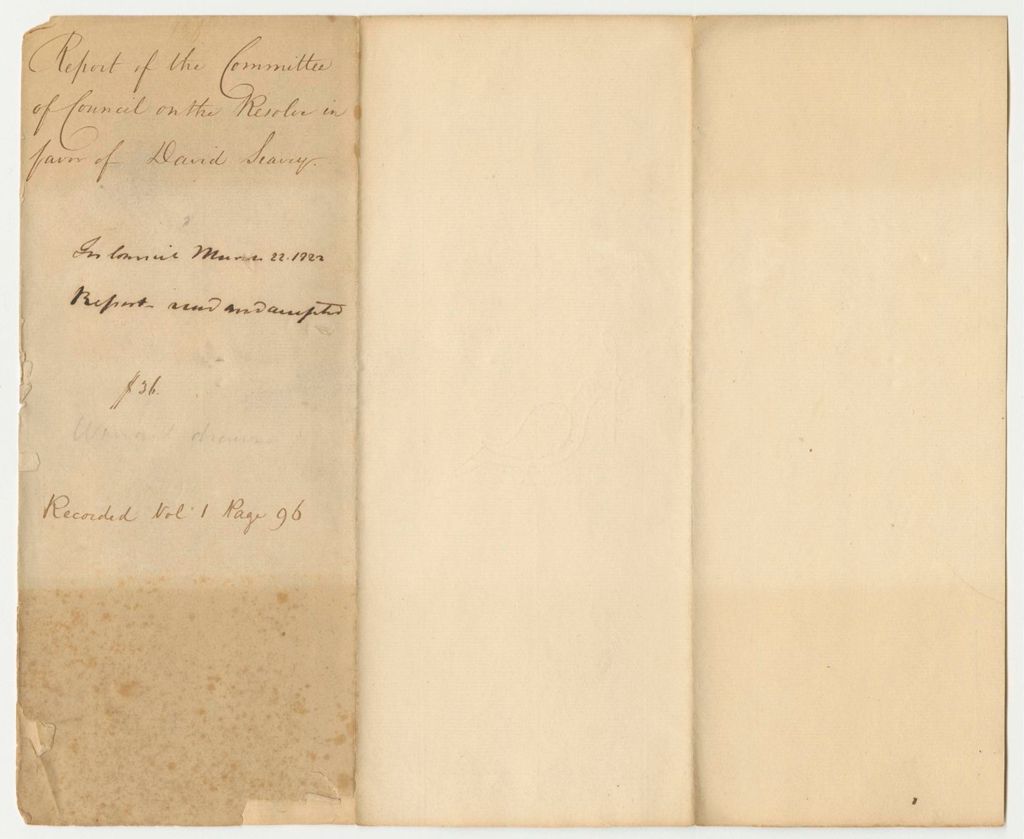 Report of the Committee
of Council on the Resolve in
favor of David Seavey.
In Council March 22. 1822
Report read and accepted
$36.
Warrant drawn
Recorded Vol. 1 Page 96